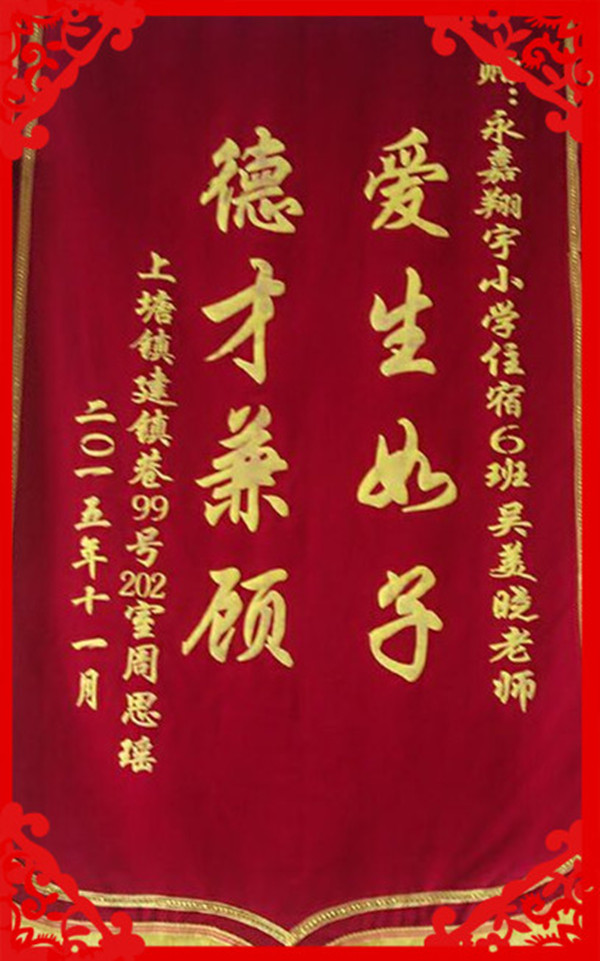 赠：永嘉翔宇小学住宿6班吴美晓老师
爱生如子
德才兼顾
上塘镇建镇巷99号202室周思瑶
二〇一五年十一月